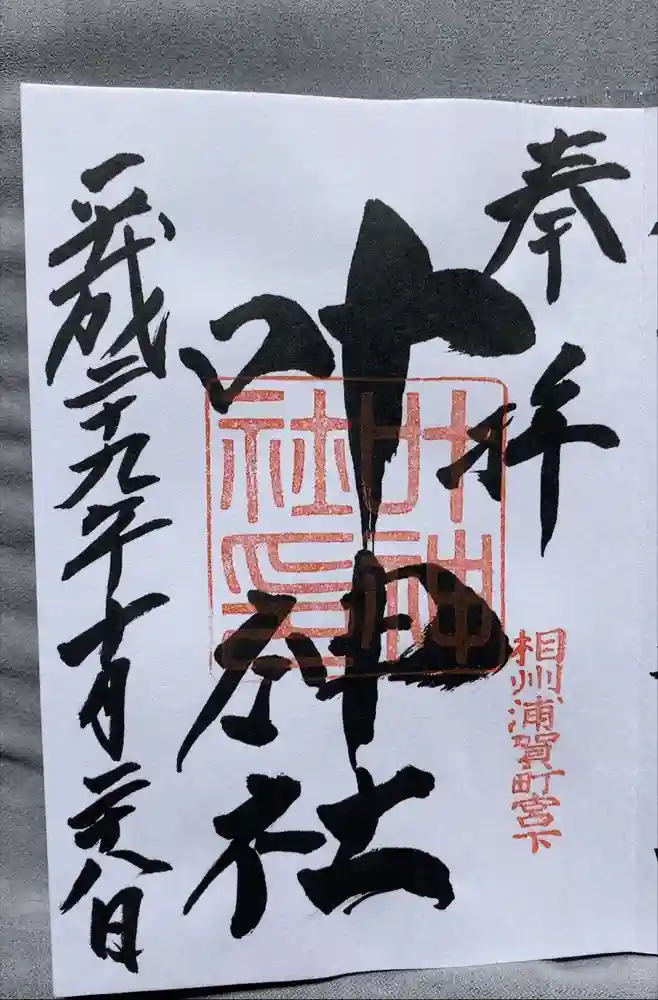 奉拝
相州浦賀町宮下
叶神社
叶神
社印
平成二十九年十月二十八日